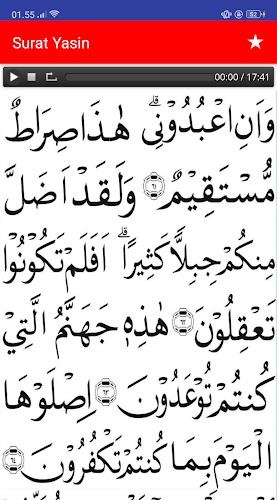 01.55
Surat Yasin
00:00 / 17:41
وَاَنِ اعْبُدُوْنِيْ ۗهٰذَا صِرَاطٌ
مُّسْتَقِيْمٌ ۝٦١ وَلَقَدْ اَضَلَّ
مِنْكُمْ جِبِلًّا كَثِيْرًا ۗاَفَلَمْ تَكُوْنُوْا
تَعْقِلُوْنَ ۝٦٢ هٰذِهٖ جَهَنَّمُ الَّتِيْ
كُنْتُمْ تُوْعَدُوْنَ ۝٦٣ اِصْلَوْهَا
الْيَوْمَ بِمَا كُنْتُمْ تَكْفُرُوْنَ ۝٦٤